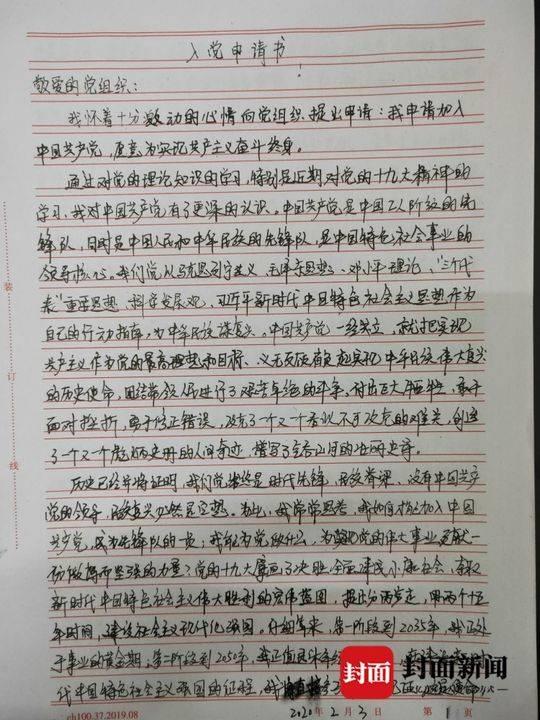 入党申请书
敬爱的党组织:
我怀着十分激动的心情向党组织提出申请:我申请加入
中国共产党,愿意为实现共产主义奋斗终身。
通过对党的理论知识的学习,特别是近期对党的十九大精神的
学习,我对中国共产党有了更深的认识。中国共产党是中国工人阶级的先
锋队,同时是中国人民和中华民族的先锋队,是中国特色社会主义事业的
领导核心。我们党以马克思列宁主义、毛泽东思想、邓小平理论、“三个代
表”重要思想、科学发展观、习近平新时代中国特色社会主义思想作为
自己的行动指南,为中华民族谋复兴。中国共产党一经成立,就把实现
共产主义作为党的最高理想和目标、义无反顾肩负起实现中华民族伟大复兴
的历史使命,团结带领人民进行了艰苦卓绝的斗争,付出巨大牺牲,勇于
面对挫折,勇于修正错误,攻克了一个又一个看似不可攻克的难关,创造
了一个又一个彪炳史册的人间奇迹,谱写了气吞山河的壮丽史诗。
历史已经并将证明,我们党始终是时代先锋、民族脊梁、没有中国共产
党的领导,民族复兴必然是空想。为此,我常常思考,我如何才能加入中国
共产党,成为先锋队的一员;我能为党做什么,为党的伟大事业贡献一
份微薄而坚强的力量?党的十九大擘画了决胜全面建成小康社会、夺取
新时代中国特色社会主义伟大胜利的宏伟蓝图,提出分两步走,用两个十五
年时间,建设社会主义现代化强国。仔细算来,第一阶段到2035年,我正处
于事业的黄金期。第二阶段到2050年,我正值
代中国特色社会主义强国的征程,我
装
订
线
封面
封面新闻
ch100.37.2019.08
2020年2月3日
第1页